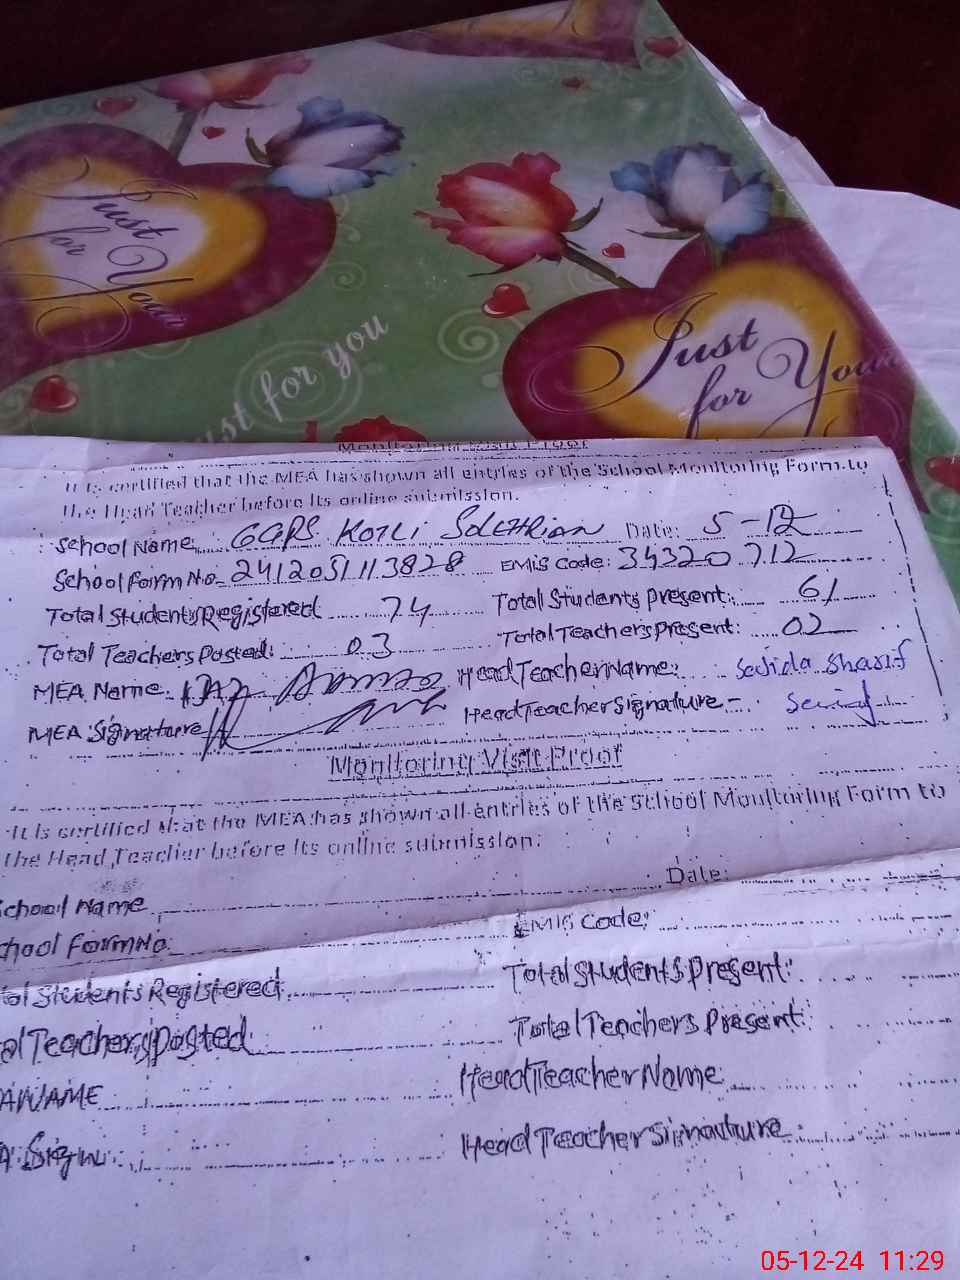 Just
for You
Just
for You
Just for you
Monitoring Visit Proof
It is certified that the MEA has shown all entries of the School Monitoring Form to
the Head Teacher before its online submission.
School Name GGPS Kotli Date: 5-12
School Form No. 241205113828 EMIS Code: 34320712
Total Students Registered 74 Total Students Present: 61
Total Teachers Posted: 03 Total Teachers Present: 02
MEA Name. Head Teacher Name: Sajida Sharif
MEA Signature Head Teacher Signature -
Monitoring Visit Proof
It is certified that the MEA has shown all entries of the School Monitoring Form to
the Head Teacher before its online submission.
School Name Date:
chool Form No. EMIS Code:
tal Students Registered Total Students Present:
al Teachers Posted Total Teachers Present:
A NAME Head Teacher Name
A Sign Head Teacher Signature
05-12-24 11:29